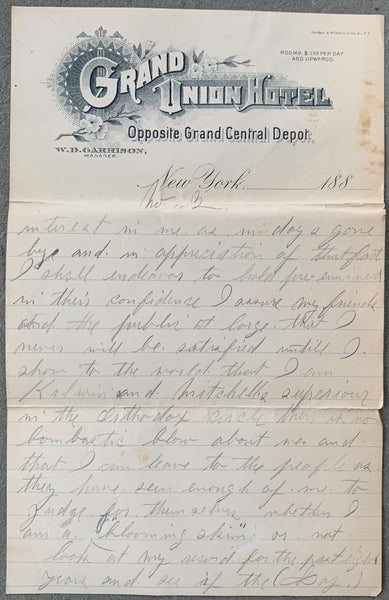 ROOMS $1.00 PER DAY
AND UPWARDS
GRAND
UNION HOTEL
Opposite Grand Central Depot.
W.D. GARRISON,
MANAGER.
New York 188
No. 3
interest in me. as in days gone
bye and in appreciation of that fact
I shall endeavor to hold pre-eminent
in their confidence I assure my friends
and the public at large. that I
never will be satisfied untill I.
show to the world that I am
Kilrain and Mitchells superiour
in the Orthodox circle there is no
bombastic blow about me. and.
that I can leave to the people as
they have seen enough of. me. to
Judge for themselves whether I
am a "blooming skin" or not.
look at my record for the past eight
years and see if the